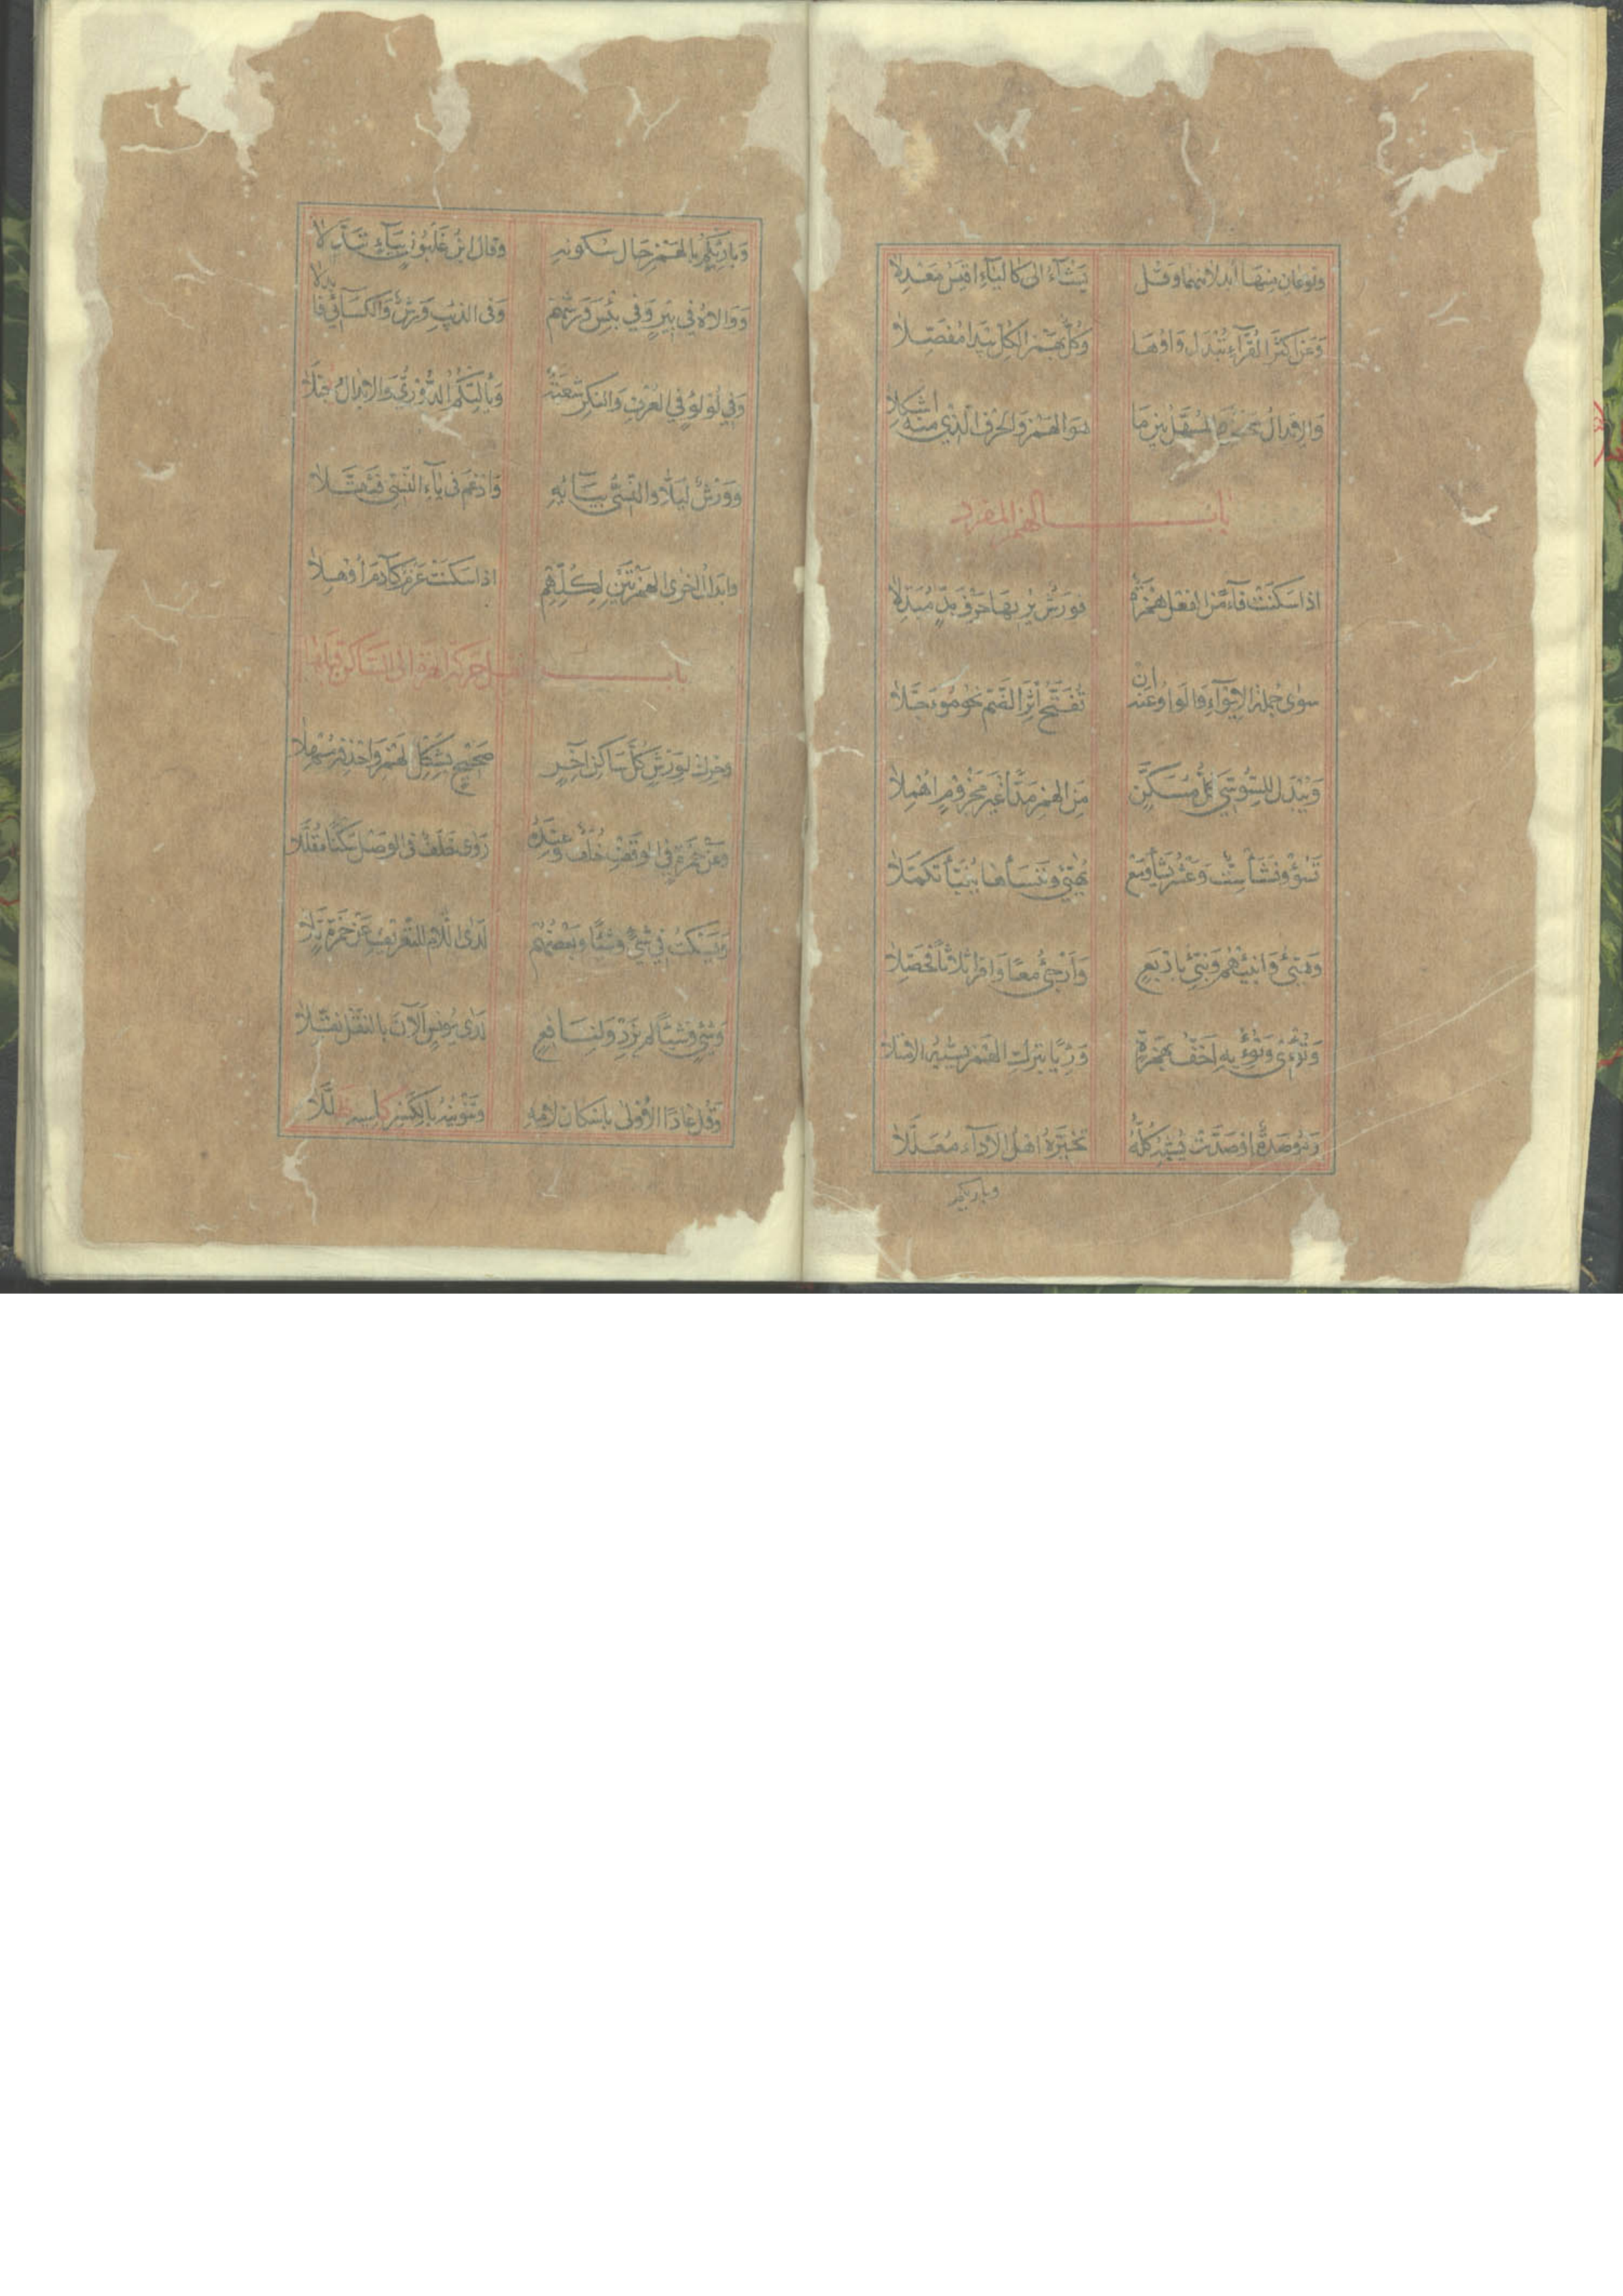 ونوعان منها أبدلا منهما وقل يشآء الى كاليآء اقيس معدلا
وعن اكثر القرآء تبدل واوها وكل بهمز الكل يبدا مفصلا
والابدال محض والمسهل بين ما هو الهمز والحرف الذي منه اشكلا
باب الهمز المفرد
اذا سكنت فآء من الفعل همزة فورش يريها حرف مد مبدلا
سوى جملة الايوآء والواو عنه ان تفتح اثر الضم نحو موجلا
ويبدل للسوسي كل مسكن من الهمز مدا غير مجزوم اهملا
تسؤ ونشأ ست وعشر يشأ ومع يهيئ وننسأها ينبأ تكملا
وهيئ وانبئهم ونبئ باربع وارجئ معا واقرا ثلاثا فحصلا
وتؤوى وتؤويه اخف بهمزه ورئيا بترك الهمز يشبه الامتلا
ومؤصدة اوصدت يشبه كله تخيره اهل الادآء معللا
وبارئكم
وبارئكم بالهمز حال سكونه وقال ابن غلبون بيآء تبدلا
ووالاه في بير وفي بئس ورشهم وفى الذيب ورش والكسائي فابدلا
وفي لؤلؤ في العرف والنكر شعبة ويألتكم الدوري والابدال يجتلا
وورش ليلا والنسئ بيائه وادغم فى يآء النسي فثقلا
وابدال اخرى الهمزتين لكلهم اذا سكنت عزم كآدم اوهلا
باب نقل حركة الهمزة الى الساكن قبلها
وحرك لورش كل ساكن آخر صحيح بشكل الهمز واحذفه مسهلا
وعن حمزة في الوقف خلف وعنده روى خلف فى الوصل سكتا مقللا
ويسكت في شئ وشيئا وبعضهم لدى اللام للتعريف عن حمزة تلا
وشئ وشيئا لم يزد ولنافع لدى يونس آلآن بالنقل نقلا
وقل عادا الاولى باسكان لامه وتنوينه بالكسر كاسيه ظللا